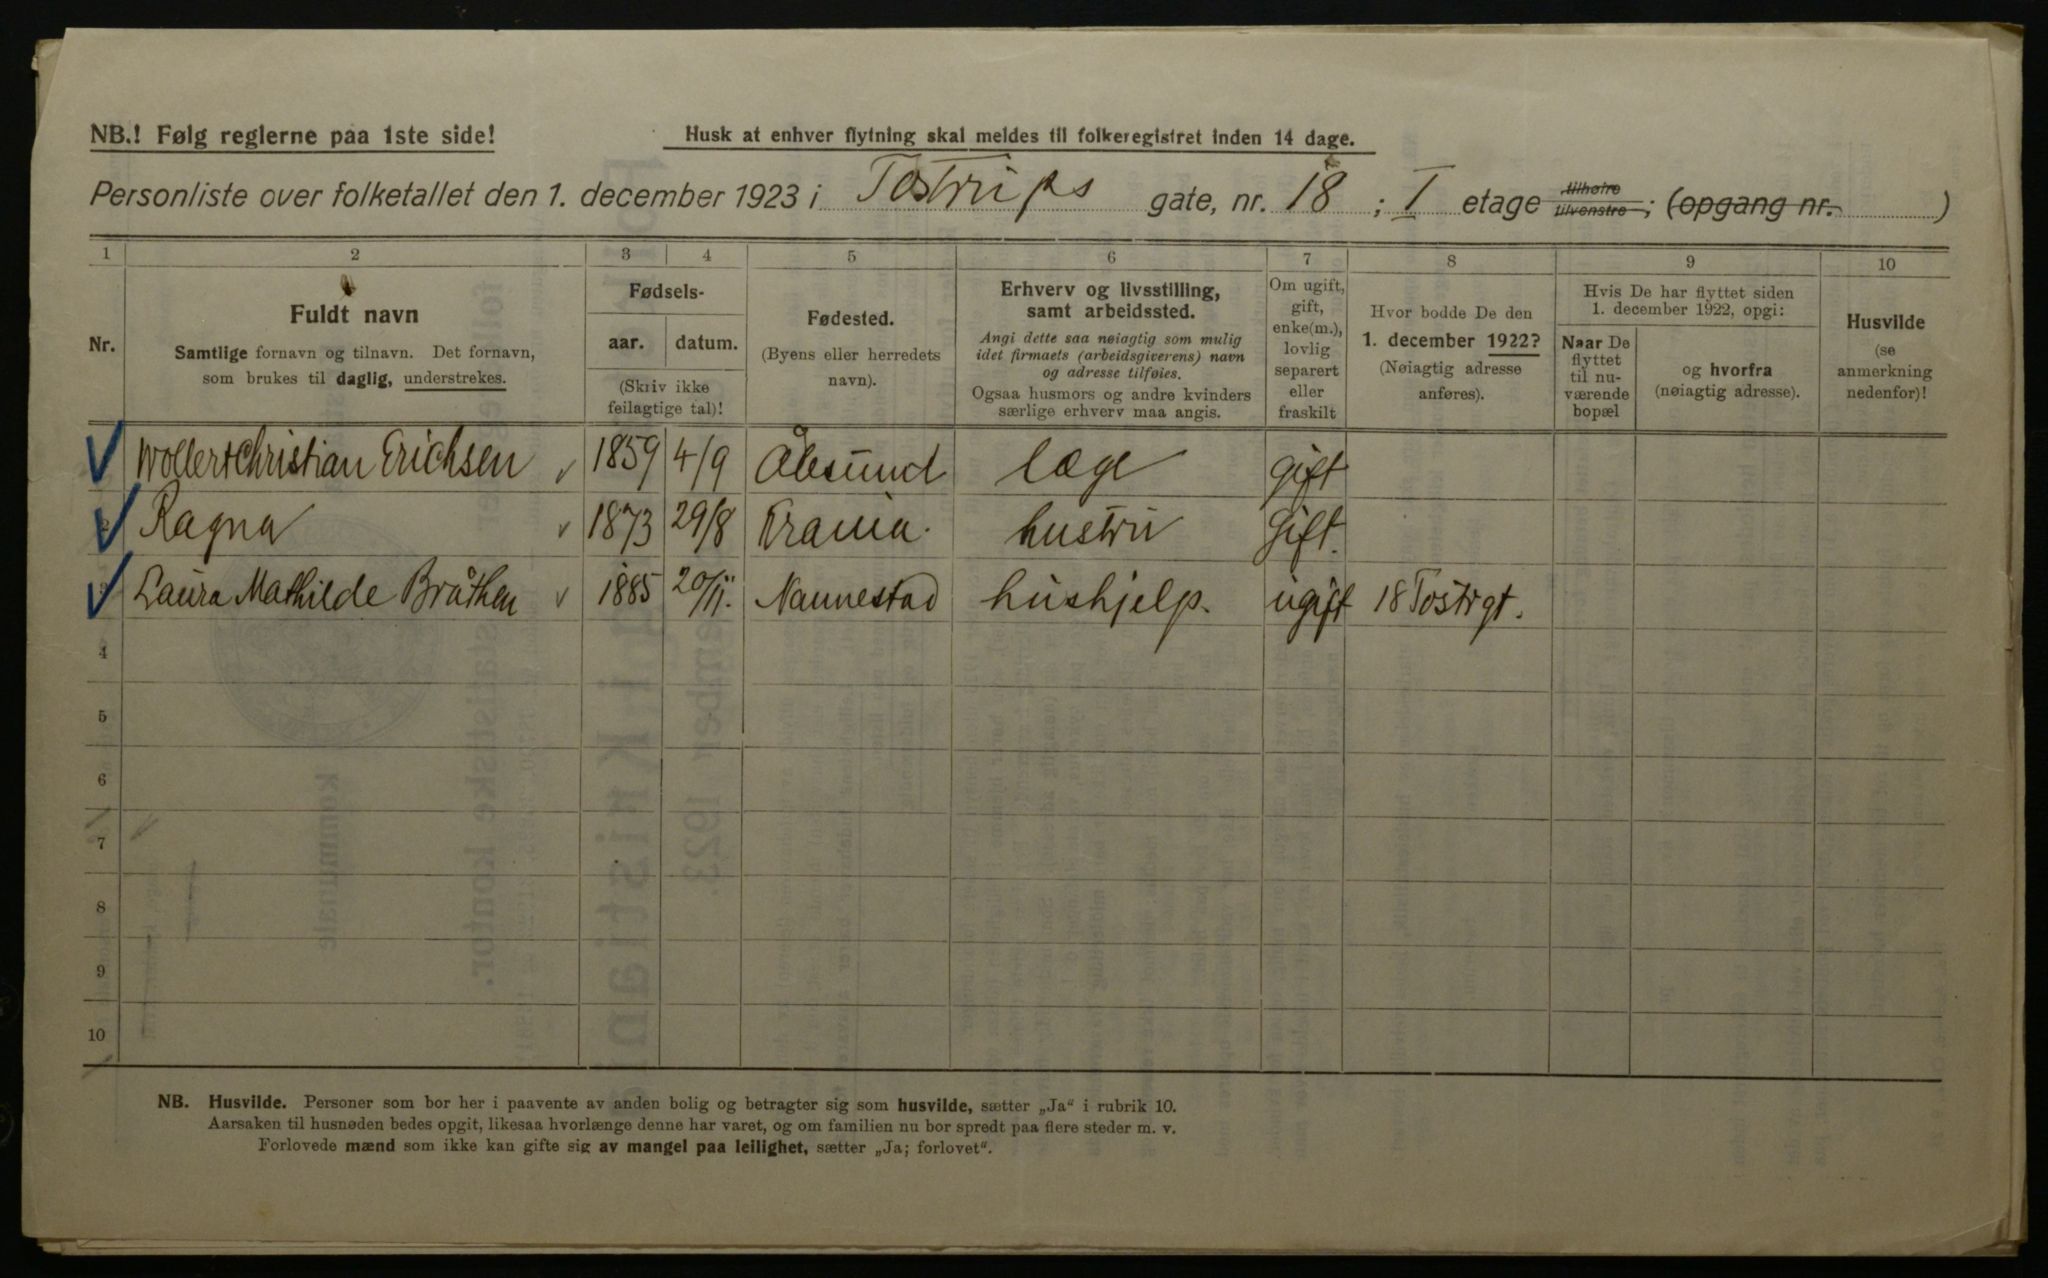 NB.! Følg reglerne paa 1ste side!
Husk at enhver flytning skal meldes til folkeregistret inden 14 dage.
Personliste over folketallet den 1. december 1923 i Tostrups gate, nr. 18 ; I etage tilhøire tilvenstre ; (opgang nr. )
1 2 3 4 5 6 7 8 9 10
Nr.
Fuldt navn
Samtlige fornavn og tilnavn. Det fornavn,
som brukes til daglig, understrekes.
Fødsels-
aar. datum.
(Skriv ikke
feilagtige tal)!
Fødested.
(Byens eller herredets
navn).
Erhverv og livsstilling,
samt arbeidssted.
Angi dette saa nøiagtig som mulig
idet firmaets (arbeidsgiverens) navn
og adresse tilføies.
Ogsaa husmors og andre kvinders
særlige erhverv maa angis.
Om ugift,
gift,
enke(m.),
lovlig
separert
eller
fraskilt
Hvor bodde De den
1. december 1922?
(Nøiagtig adresse
anføres).
Hvis De har flyttet siden
1. december 1922, opgi:
Naar De
flyttet
til nu-
værende
bopæl
og hvorfra
(nøiagtig adresse).
Husvilde
(se
anmerkning
nedenfor)!
Wollert Christian Erichsen 1859 4/9 Ålesund læge gift
2 Ragna 1873 29/8 Krania. hustru Gift.
3 Laura Mathilde Bråthen 1885 20/11. Nannestad hushjelp. ugift 18 Tostrgt.
4
5
6
7
8
9
10
NB. Husvilde. Personer som bor her i paavente av anden bolig og betragter sig som husvilde, sætter „Ja“ i rubrik 10.
Aarsaken til husnøden bedes opgit, likesaa hvorlænge denne har varet, og om familien nu bor spredt paa flere steder m. v.
Forlovede mænd som ikke kan gifte sig av mangel paa leilighet, sætter „Ja; forlovet“.